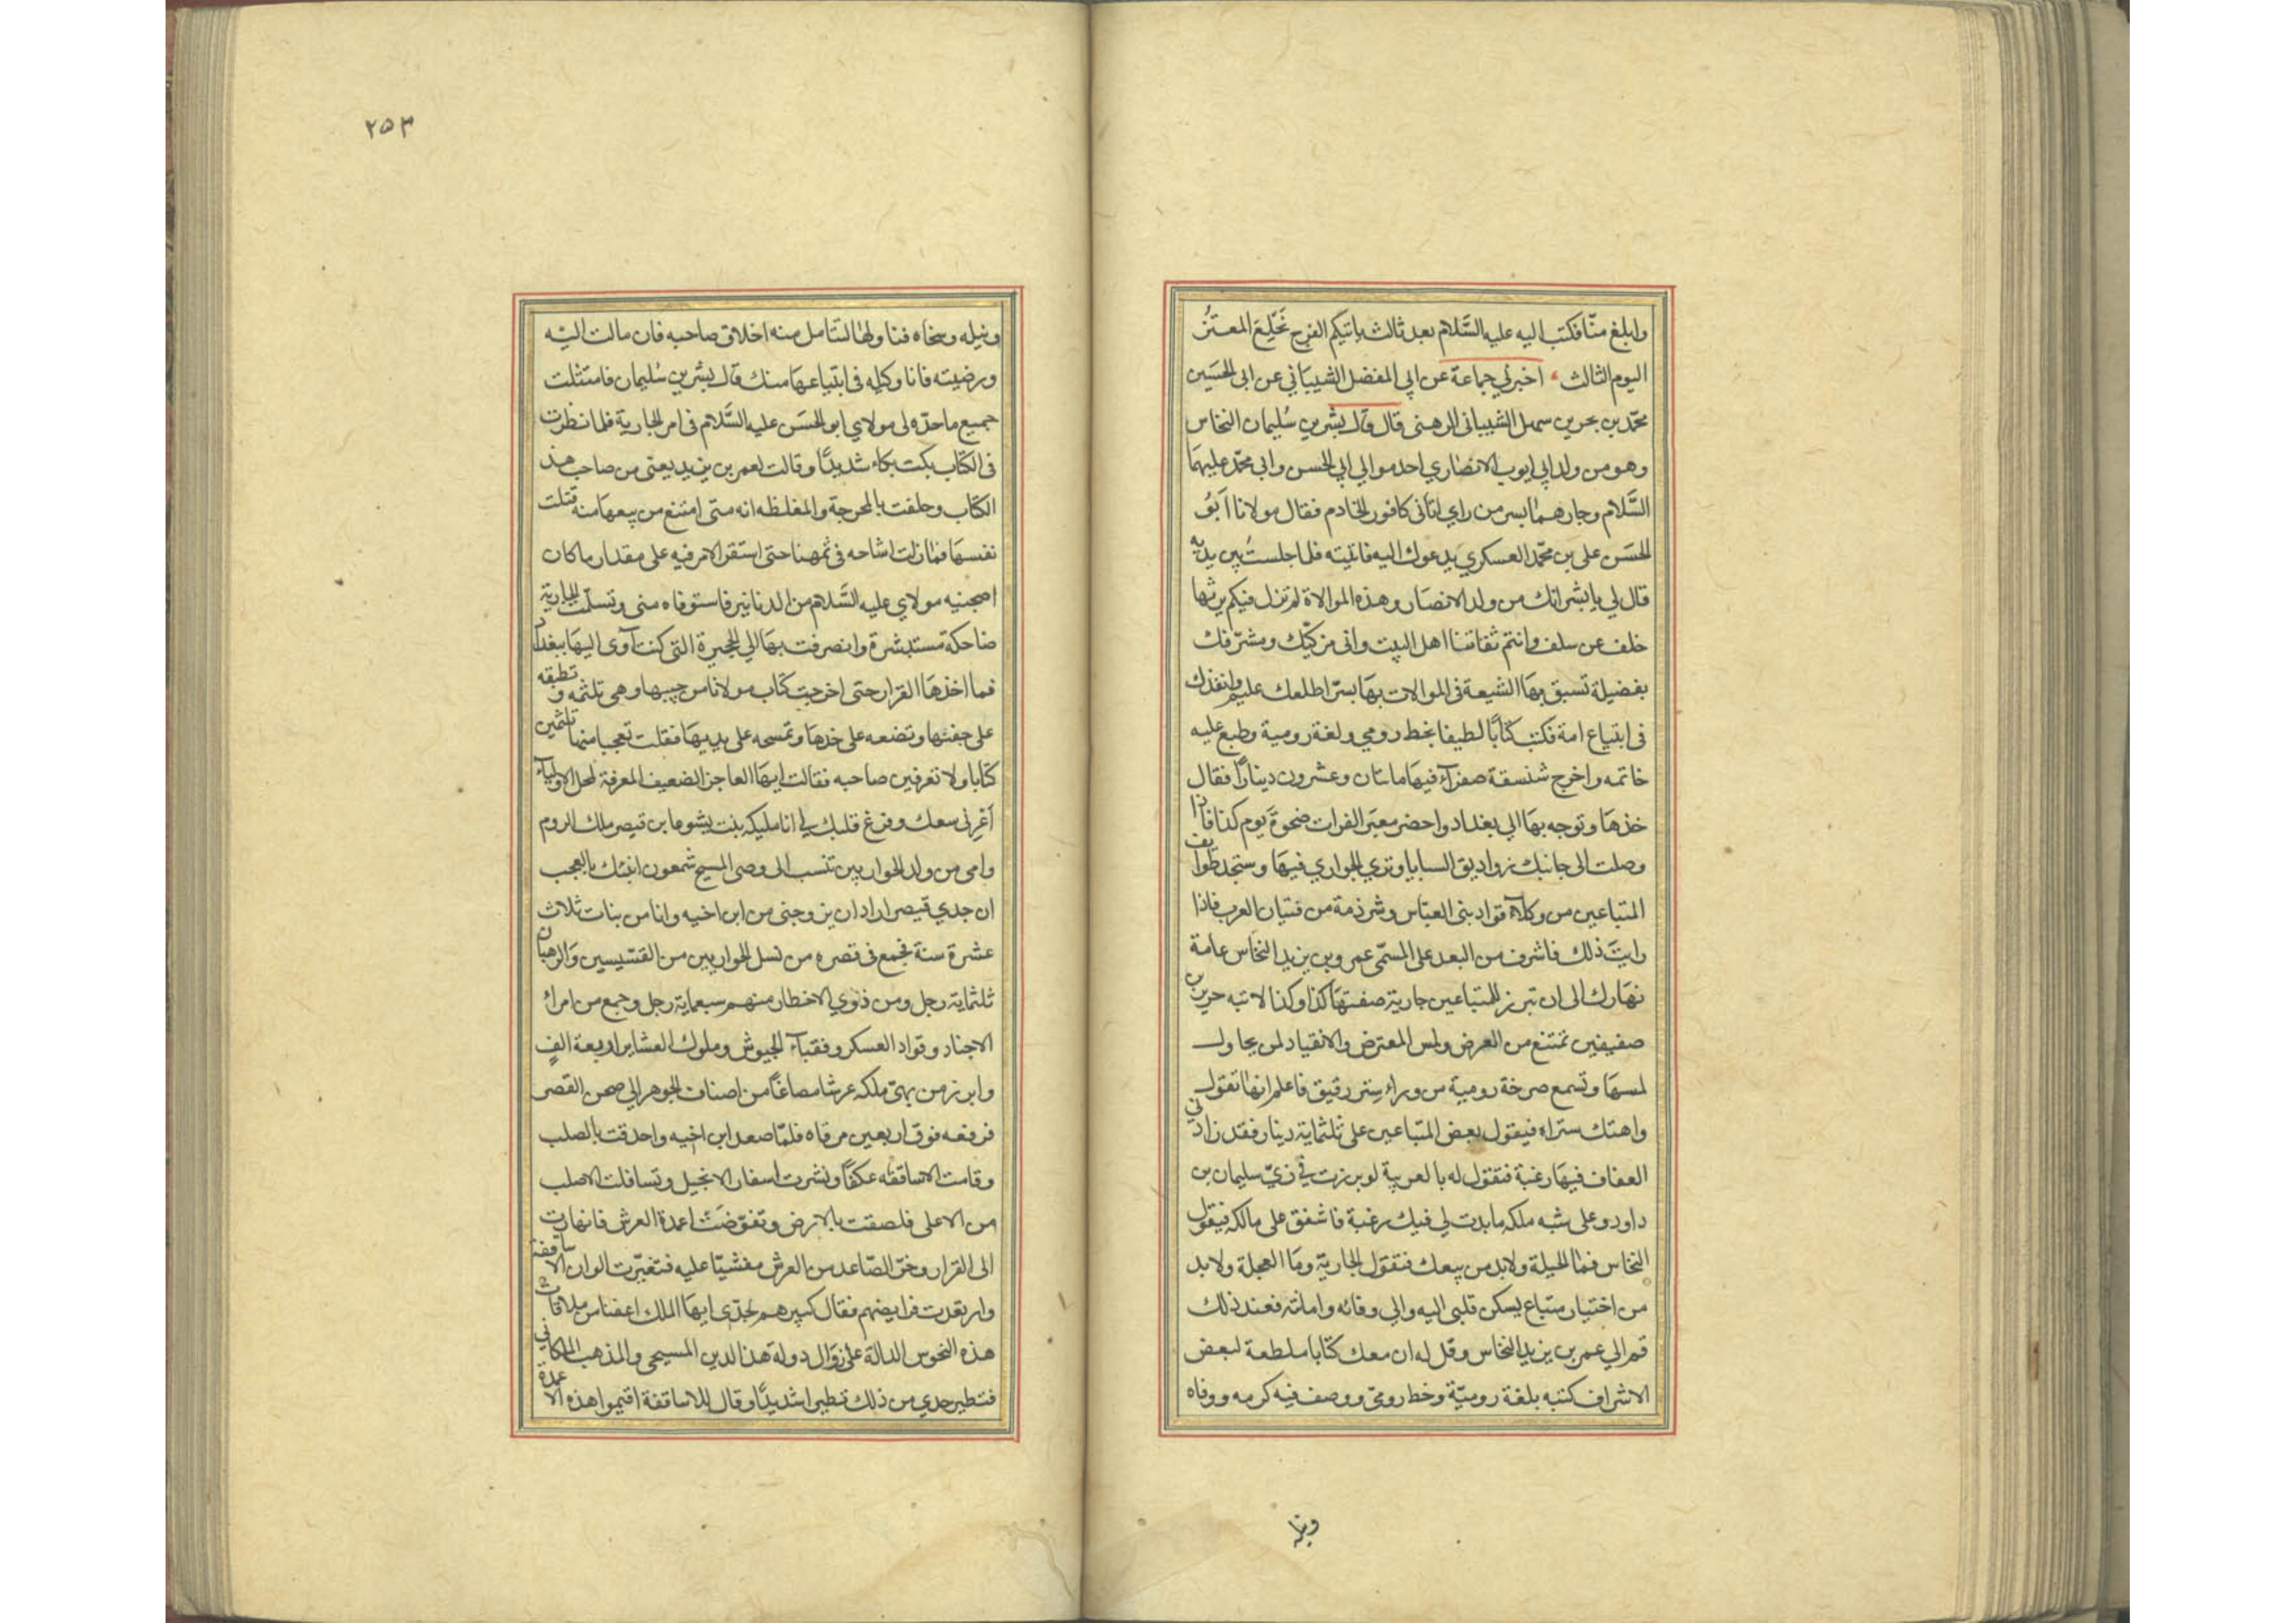 وابلغ منّا فكتب اليه عليه السَّلام بعد ثالث ياتيكم الفرج نَخْلِعَ المعتزُ
اليوم الثالث اخبرني جماعة عن ابي المفضل الشيباني عن ابى الحسَين
محمّد بن بحر بن سهل الشيبانى الرهنى قال قال بشر بن سُليمان النخاس
وهو من ولد ابي ايوب الانصاري احد موالي ابي الحسن وابى محمّد عليهمَا
السَّلام وجارهما بسر من راي اتانى كافور الخادم فقال مولانا اَبُو
الحسَن على بن محمّد العسكري يدعوك اليه فاتيته فلما جلستُ بين يديه
قال لي يا بشر انك من ولد الانصَار وهذه الموالاة لم تزل فيكم يرثها
خلف عن سلف وانتم ثقاتنا اهل البيت وانى مزكّيك ومشرّفك
بفضيلة تسبق بهَا الشيعة فى الموالات بهَا بسرّ اطلعك عليه وانفذك
فى ابتياع امة فكتب كتابًا لطيفا بخط رومي ولغة رومية وطبع عليه
خاتمه واخرج شنسقة صفرآء فيهَا مائتان وعشرون دينارًا فقال
خذهَا وتوجه بهَا الي بغداد واحضر معبَر الفرات ضحوةَ يوم كذا فاذا
وصلت الى جانبك زواريق السبايا وترى الجواري فيهَا وستجد طوايف
المتباعين من وكلآء قواد بنى العبّاس وشرذمة من فتيان العرب فاذا
رايتَ ذلك فاشرف من البعد على المسمّى عمرو بن يزيد النخاس عامة
نهَارك الى ان تبرز للمتباعين جارية صفتهَا كذا وكذا لابسة حريرين
صفيفين تمتنع من العرض ولمس المعترض والانقياد لمن يحاول
لمسهَا وتسمع صرخة رومية من وراء سِتر رقيق فاعلم انها تقول
واهتك ستراه فيقول بعض المتباعين على ثلثماية دينار فقد زادني
العفاف فيهَا رغبة فتقول له بالعربية لو برزت في زيّ سليمان بن
داود وعلى شبه ملكه ما بدت لي فيك رغبة فاشفق على مالكه فيقول
النخاس فما الحيلة ولا بد من بيعك فتقول الجاريّة ومَا العجلة ولا بد
من اختيار متباع يسكن قلبى اليه والي وفائه وامانته فعند ذلك
قم الي عمر بن يزيد النخاس وقل له ان معك كتابا ملطعة لبعض
الاشراف كتبه بلغة روميّة وخط رومىّ ووصف فيه كرمه ووفاه
ونبله
٢٥٣
ونبله وسخاه فناولها لتتامل منه اخلاق صاحبه فان مالت اليه
ورضيته فانا وكيله فى ابتياعهَا منك قال بشر بن سُليمان فامتثلت
جميع ما حدّه لى مولاي ابو الحسَن عليه السَّلام فى امر الجارية فلما نظرت
فى الكتاب بكت بكاء شديدًا وقالت لعمر بن يزيد يعنى من صاحب هذ
الكتاب وحلفت بالمحرجة والمغلظه انه متى امتنع من بيعهَا منه قتلت
نفسهَا فما زلت اشاحه فى ثمهنا حتى استقر الامر فيه على مقدار ما كان
اصحبنيه مولاي عليه السَّلام من الدنانير فاستوفاه منى وتسلّمت الجارية
ضاحكة مستبشرة وانصرفت بهَا الي الحجيرة التى كنت آوى اليهَا ببغداد
فما اخذهَا القرار حتى اخرجت كتاب مولانا من جيبها وهى تلثمه و تطبقه
على جفنها وتضعه على خدهَا وتمسحه على بدنهَا فقلت تعجبا منها تلثمين
كتابا ولا تعرفين صاحبه فقالت ايهَا العاجز الضعيف المعرفة بمحل الاولياء
اَعْرِنى سمعك وفرغ قلبك لي انا مليكه بنت يشوعا بن قيصر ملك الروم
وامى من ولد الحواريين تنسب الى وصى المسيح شمعون انبئك بالعجب
ان جدي قيصر اراد ان يزوجنى من ابن اخيه وانا من بنات ثلاث
عشرة سنة فجمع فى قصره من نسل الحواريين من القسّيسين وَالرهبان
ثلثماية رجل ومن ذوي الاخطار منهم سبعماية رجل وجمع من امراء
الاجناد وقواد العسكر و نقباء الجيوش وملوك العشاير اربعة الفٍ
وابرز من بهىّ ملكه عرشا مصاغًا من اصناف الجوهر الي صحن القصر
فرفعه فوق اربعين مرقاه فلمّا صعد ابن اخيه واحدقت بالصلب
وقامت الاساقفه عكفًا ونشرت اسفار الانجيل وتسافلت الاصلب
من الاعلى فلصقت بالارض وتفوّضَت اعمدة العرش فانهارت
الى القرار وخرّ الصّاعد من العرش مغشيّا عليه فتغيّرت الوان الاساقفة
وارتعدت فرايضهم فقال كبيرهم لجدّى ايهَا الملك اعفنا من ملاقات
هذه النحوس الدالة على زوَال دولة هذا الدين المسيحى والمذهب الملكاني
فتطير جدي من ذلك تطيرا شديدًا وقال للاساقفة اقيموا هذه الاعمدة